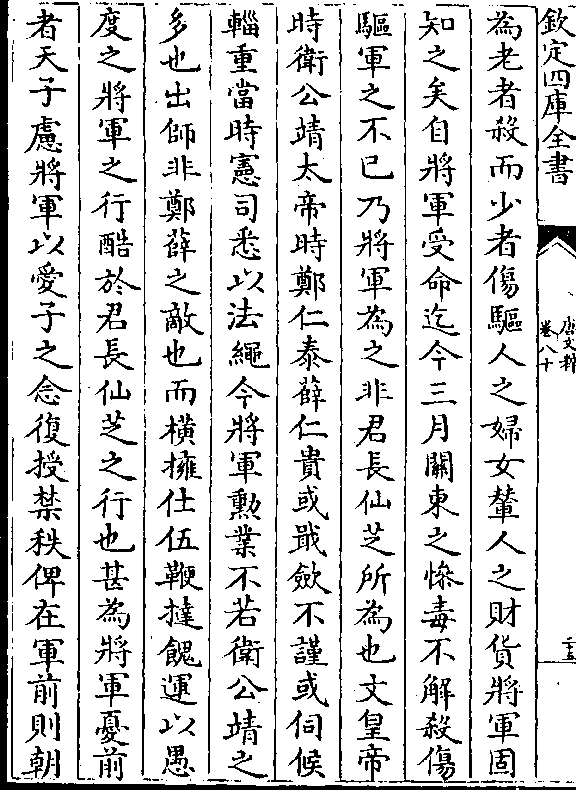 欽定四庫全書
唐文粹
卷八十
為老者殺而少者傷驅人之婦女輦人之財貨將軍固
知之矣自將軍受命迄今三月關東之慘毒不解殺傷
驅軍之不已乃將軍為之非君長仙芝所為也文皇帝
時衛公靖太帝時鄭仁泰薛仁貴或戢斂不謹或伺候
輜重當時憲司悉以法繩今將軍勲業不若衛公靖之
多也出師非鄭薛之敵也而横擁仕伍鞭撻餽運以愚
度之將軍之行酷於君長仙芝之行也甚為將軍憂前
者天子慮將軍以愛子之念復授禁秩俾在軍前則朝